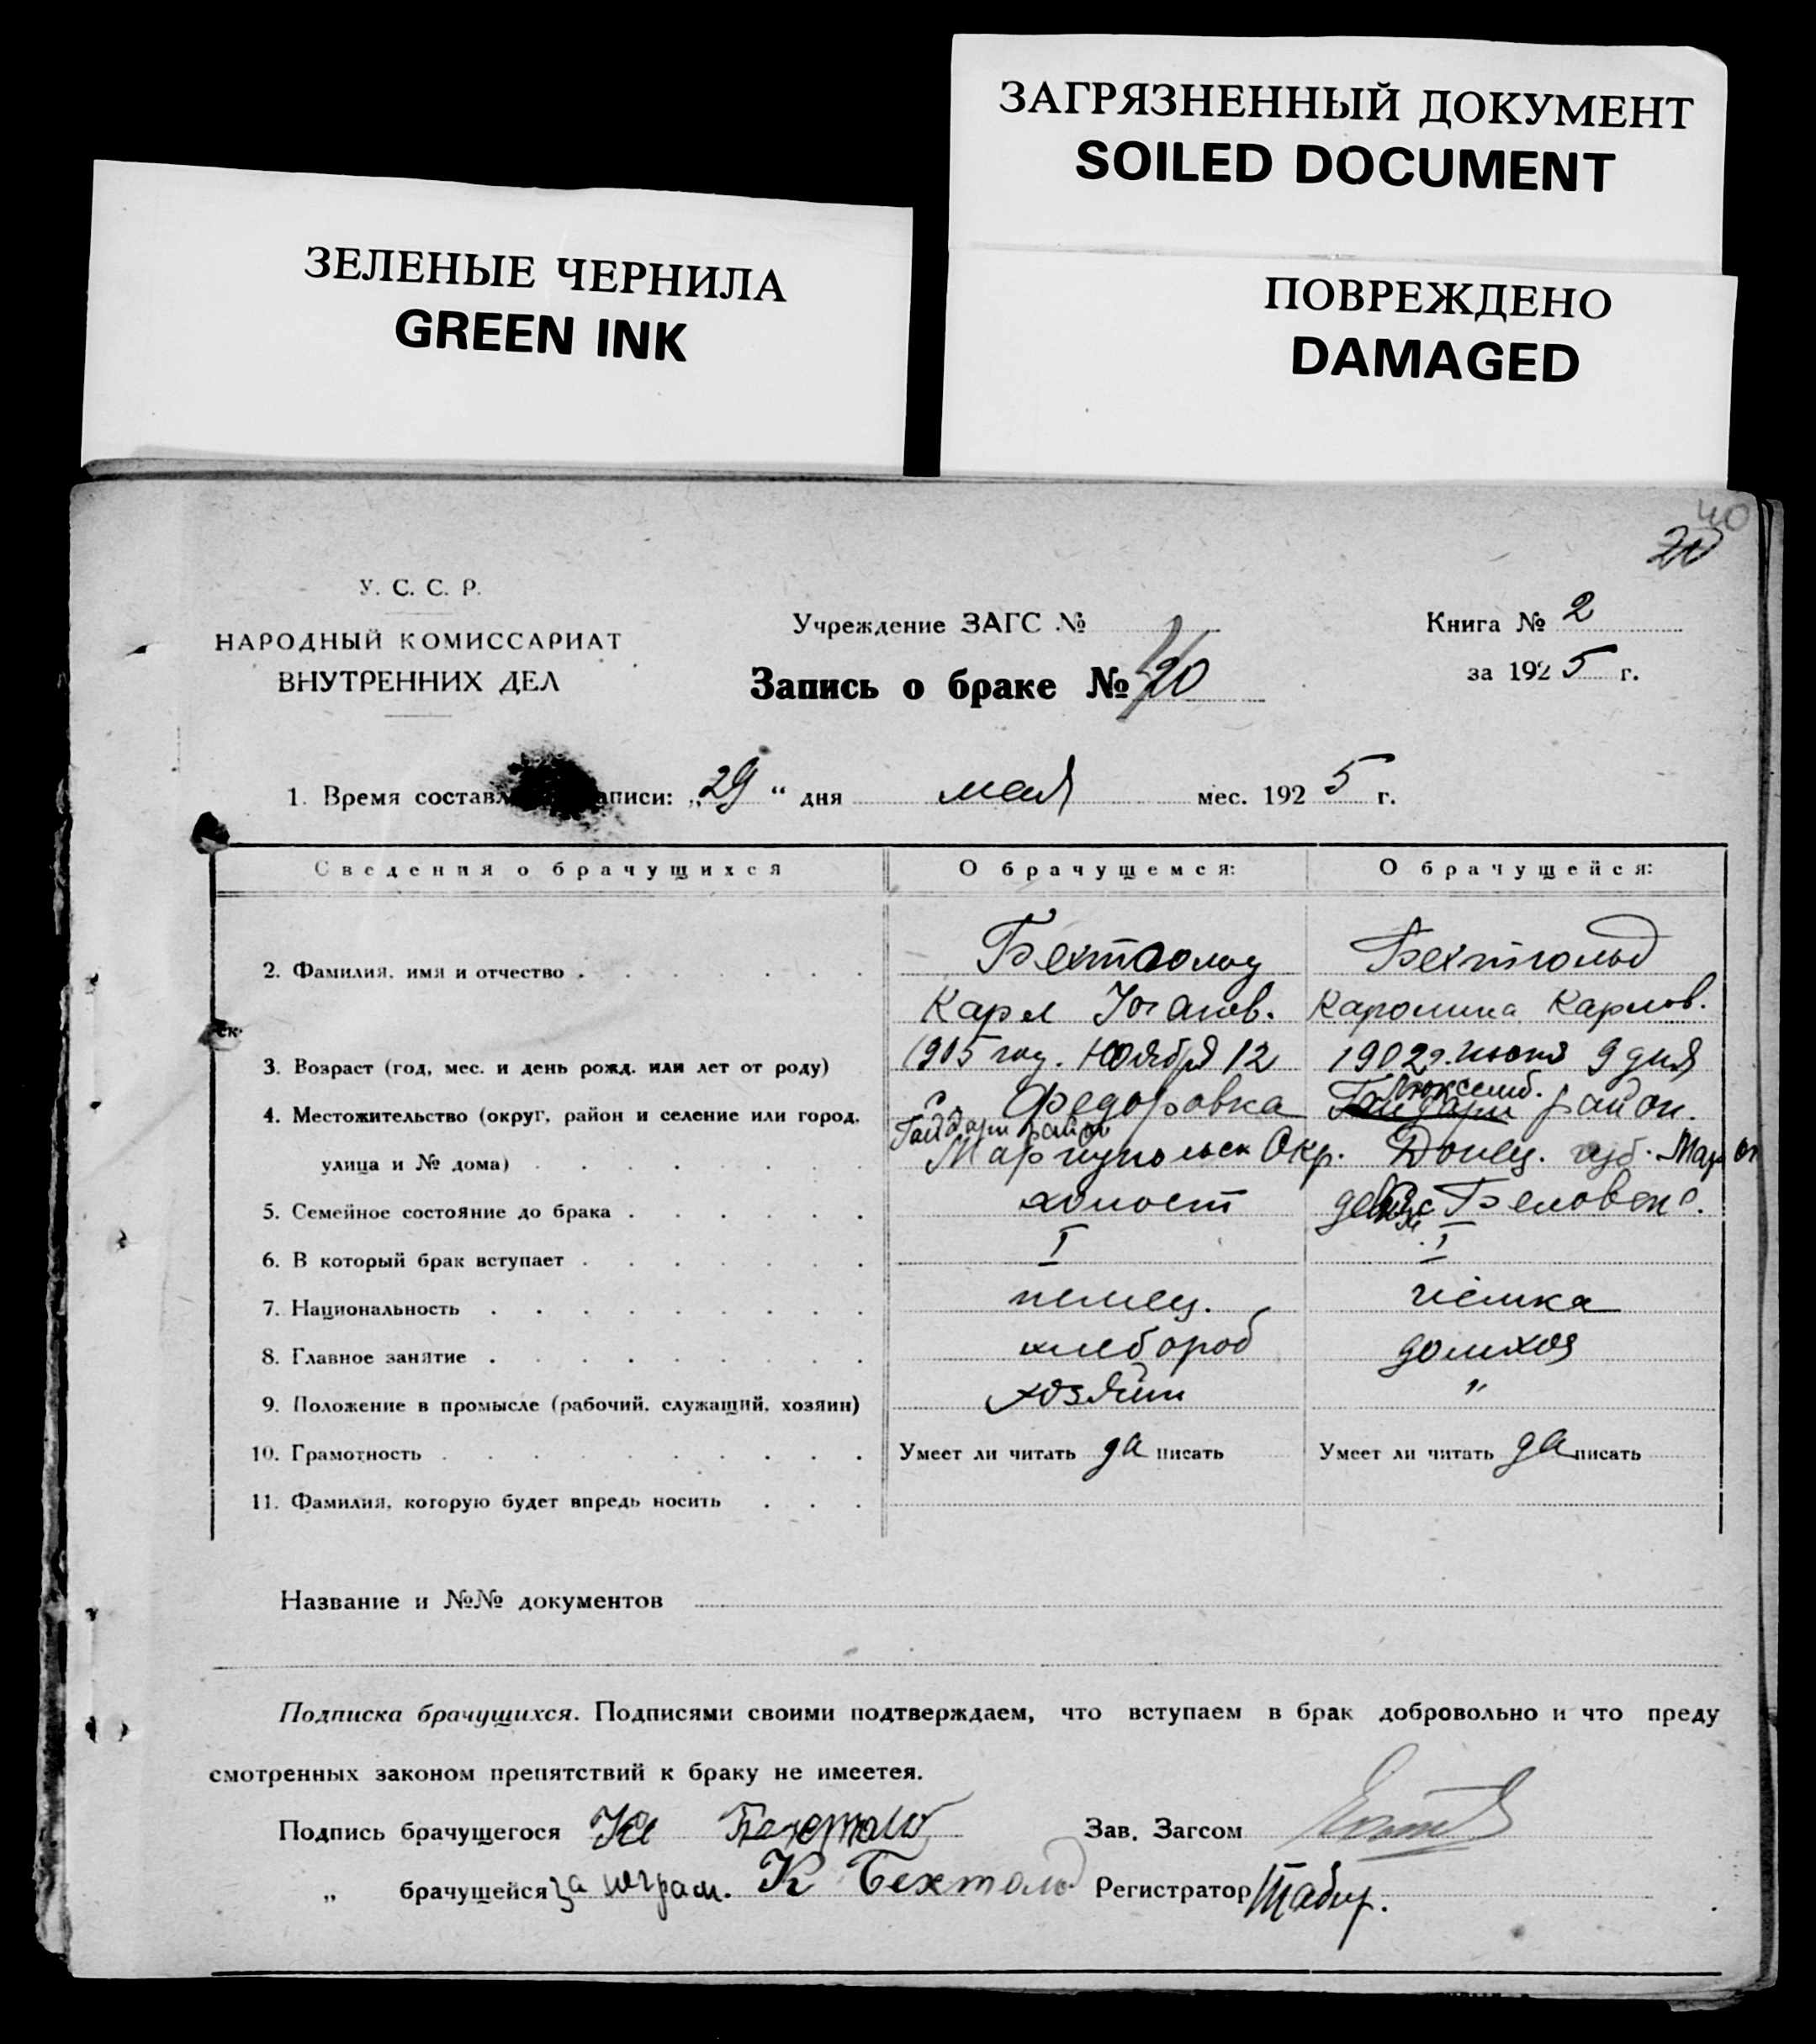 ЗАГРЯЗНЕННЫЙ ДОКУМЕНТ
SOILED DOCUMENT
ЗЕЛЕНЫЕ ЧЕРНИЛА
GREEN INK
ПОВРЕЖДЕНО
DAMAGED
40
20
У. С. С. Р.
НАРОДНЫЙ КОМИССАРИАТ
ВНУТРЕННИХ ДЕЛ
Учреждение ЗАГС №
Запись о браке № 20
Книга № 2
за 1925 г.
1. Время составл аписи: „29“ дня мая мес. 1925 г.
Сведения о брачущихся О брачущемся: О брачущейся:
2. Фамилия, имя и отчество Бехтольд Бехтольд
Карл Юганов. Каролина Карлов.
3. Возраст (год, мес. и день рожд. или лет от роду) 1905 год. Ноября 12 1902 г. июня 9 дня
4. Местожительство (округ, район и селение или город, с. Федоровка Люксемб. район.
Гайдари район
улица и № дома) Мариупольск Окр. Донец. губ. Мар ок
5. Семейное состояние до брака холост девица Беловеж с.
6. В который брак вступает I I
7. Национальность немец. немка
8. Главное занятие хлебороб домхоз
9. Положение в промысле (рабочий, служащий, хозяин) хозяин "
10. Грамотность Умеет ли читать да писать Умеет ли читать да писать
11. Фамилия, которую будет впредь носить
Название и №№ документов
Подписка брачущихся. Подписями своими подтверждаем, что вступаем в брак добровольно и что преду
смотренных законом препятствий к браку не имеетея.
Подпись брачущегося К Бехтольд Зав. Загсом
„ брачущейся за неграм. К Бехтольд Регистратор